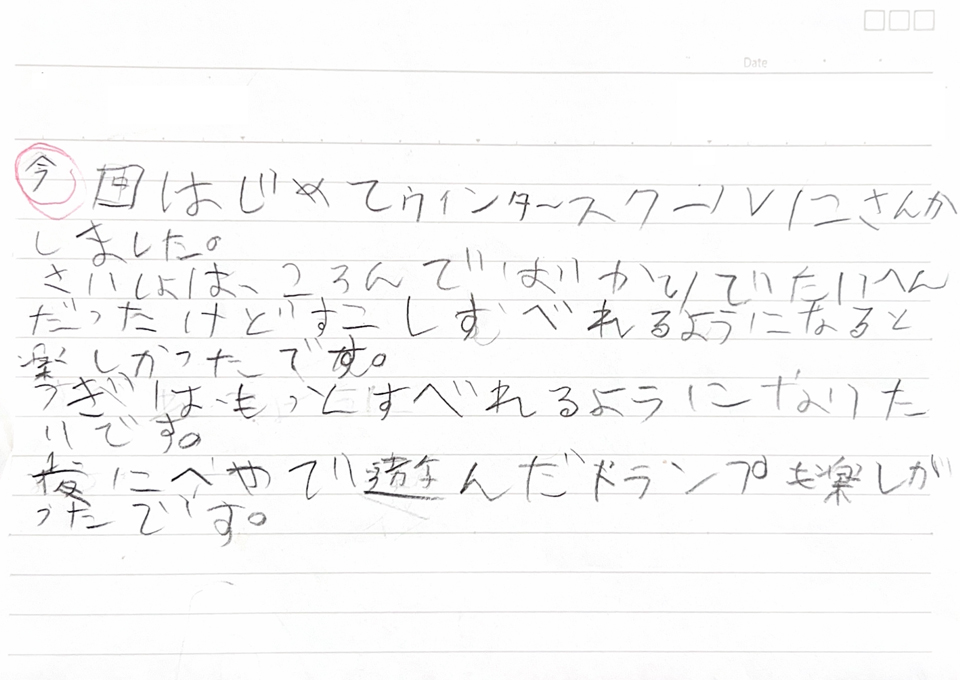 Date
今回はじめてウィンタースクールにさんか
しました。
さいしょは、ころんでばかりでたいへん
だったけどすこしすべれるようになると
楽しかったです。
つぎは、もっとすべれるようになりた
いです。
夜にへやで遊んだドランプも楽しが
ったです。